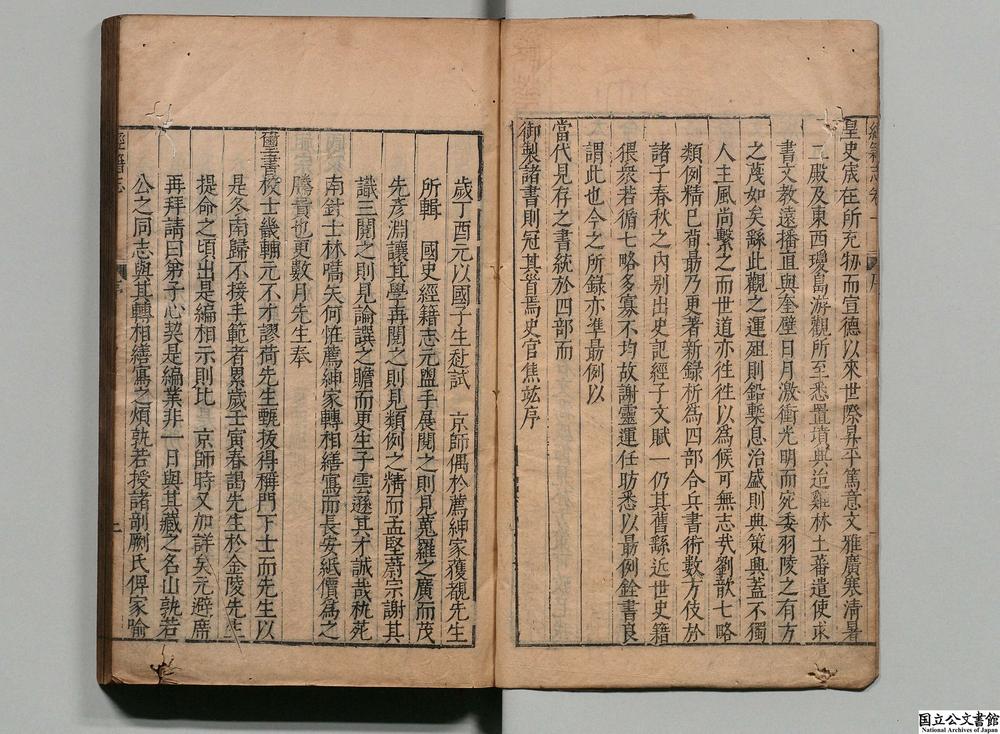 皇史宬在所充牣而宣德以來世際昇平篤意文雅廣寒清暑
二殿及東西瓊島游觀所至悉置墳典迨雞林土蕃遣使求
書文教遠播直與奎壁日月激衝光明而宛委羽陵之有方
之蔑如矣繇此觀之運徂則鉛槧息治盛則典策興蓋不獨
人主風尚繫之而世道亦徃徃以爲候可無志㦲劉歆七略
類例精已荀勗乃更著新錄析爲四部合兵書術數方伎於
諸子春秋之內別出史記經子文賦一仍其舊繇近世史籍
猥衆若循七略多寡不均故謝靈運任昉悉以勗例銓書良
謂此也今之所錄亦準勗例以
當代見存之書統於四部而
御製諸書則冠其首焉史官焦竑序
歲丁酉元以國子生赴試 京師偶於薦紳家獲覩先生
所輯 國史經籍志元盥手展閱之則見蒐羅之廣而茂
先彥淵讓其學再閱之則見類例之精而孟堅蔚宗謝其
識三閱之則見論譔之贍而更生子雲遜其才誠哉杭茈
南針士林嚆矢何恠薦紳家轉相繕寫而長安紙價爲之
騰貴也更數月先生奉
璽書校士畿輔元不才謬荷先生甄拔得稱門下士而先生以
是冬南歸不接丰範者累歲壬寅春謁先生於金陵先生
提命之頃出是編相示則比 京師時又加詳矣元避席
再拜請曰弟子心契是編業非一日與其藏之名山孰若
公之同志與其轉相繕寫之煩孰若授諸剞劂氏俾家喻
經籍志 序 上
国立公文書館
National Archives of Japan